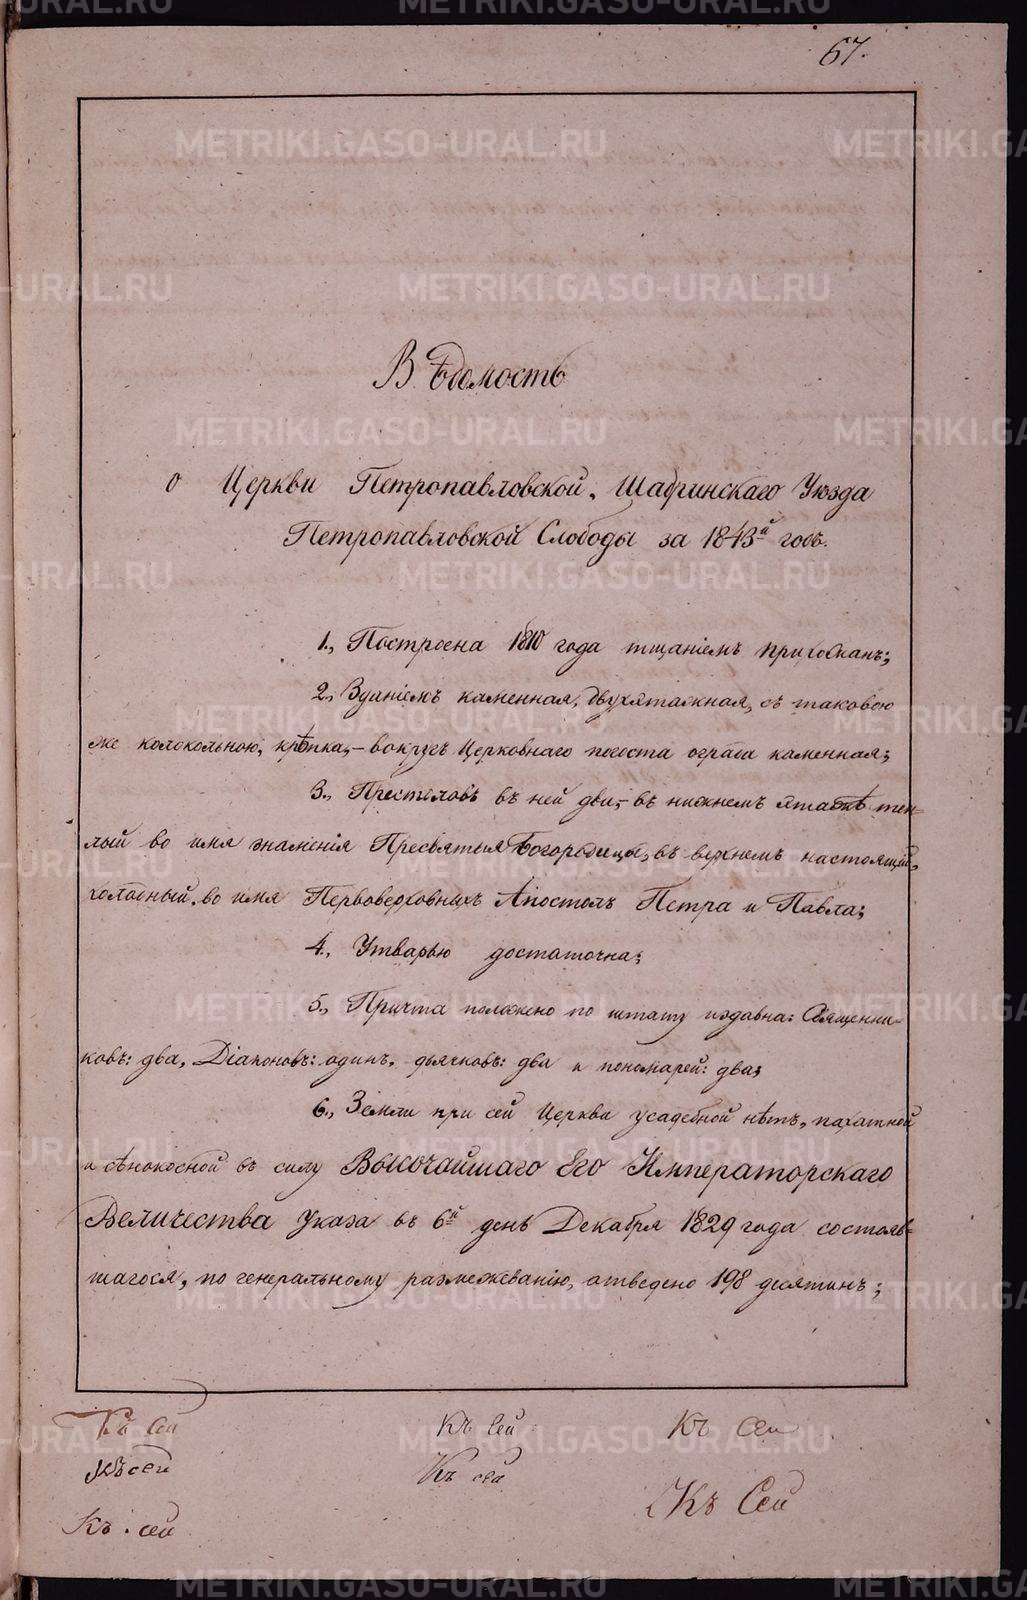 67.
Вѣдомость
о Церкви Петропавловской, Шадринскаго Уѣзда
Петропавловской Слободы за 1843й годъ.
1., Построена 1810 года тщаніемъ прихожанъ;
2., Зданіемъ каменная, двухъэтажная, съ таковою
же колокольнею, крѣпка, – вокругъ Церковнаго погоста ограда каменная;
3., Престоловъ въ ней два, – въ нижнемъ этажѣ теп-
лый во имя знаменія Пресвятыя Богородицы, въ верхнемъ настоящій,
холодный, во имя Первоверховныхъ Апостолъ Петра и Павла;
4., Утварью достаточна;
5., Причта положено по штату издавна: Священни-
ковъ: два, Діаконовъ: одинъ, дьячковъ: два и пономарей: два;
6., Земли при сей Церкви усадебной нѣтъ, пахатной
и сѣнокосной въ силу Высочайшаго Его Императорскаго
Величества Указа въ 6й день Декабря 1829 года состояв-
шагося, по генеральному размежеванію, отведено 198 десятинъ;
Къ сей Къ Сей Къ сей
Къ сей Къ сей Къ Сей
Къ сей
METRIKI.GASO-URAL.RU